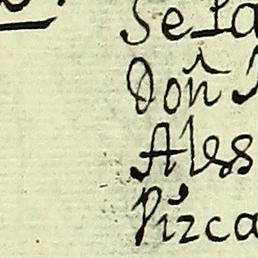 Sela
Doñ
Aless
Pizca